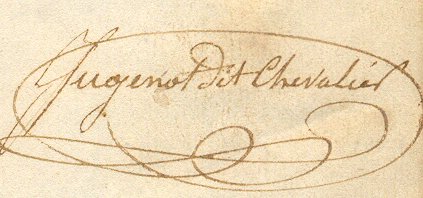 Jugenot dit Chevalier